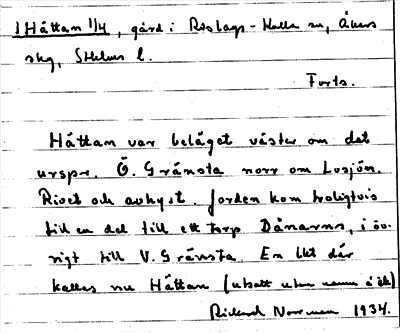 1 Håttan 1/4, gård i Roslags-Kulla sn, Åkers
skg, Sthlms l.
Forts.
Håttan var beläget väster om det
urspr. Ö. Gränsta norr om Losjön.
Rivet och avhyst. Jorden kom troligtvis
till en del till ett torp Dånarns, i öv-
rigt till V. Gränsta. En lkt där
kallas nu Håttan (utsatt utan namn å ek)
Rickard Norrman 1934.